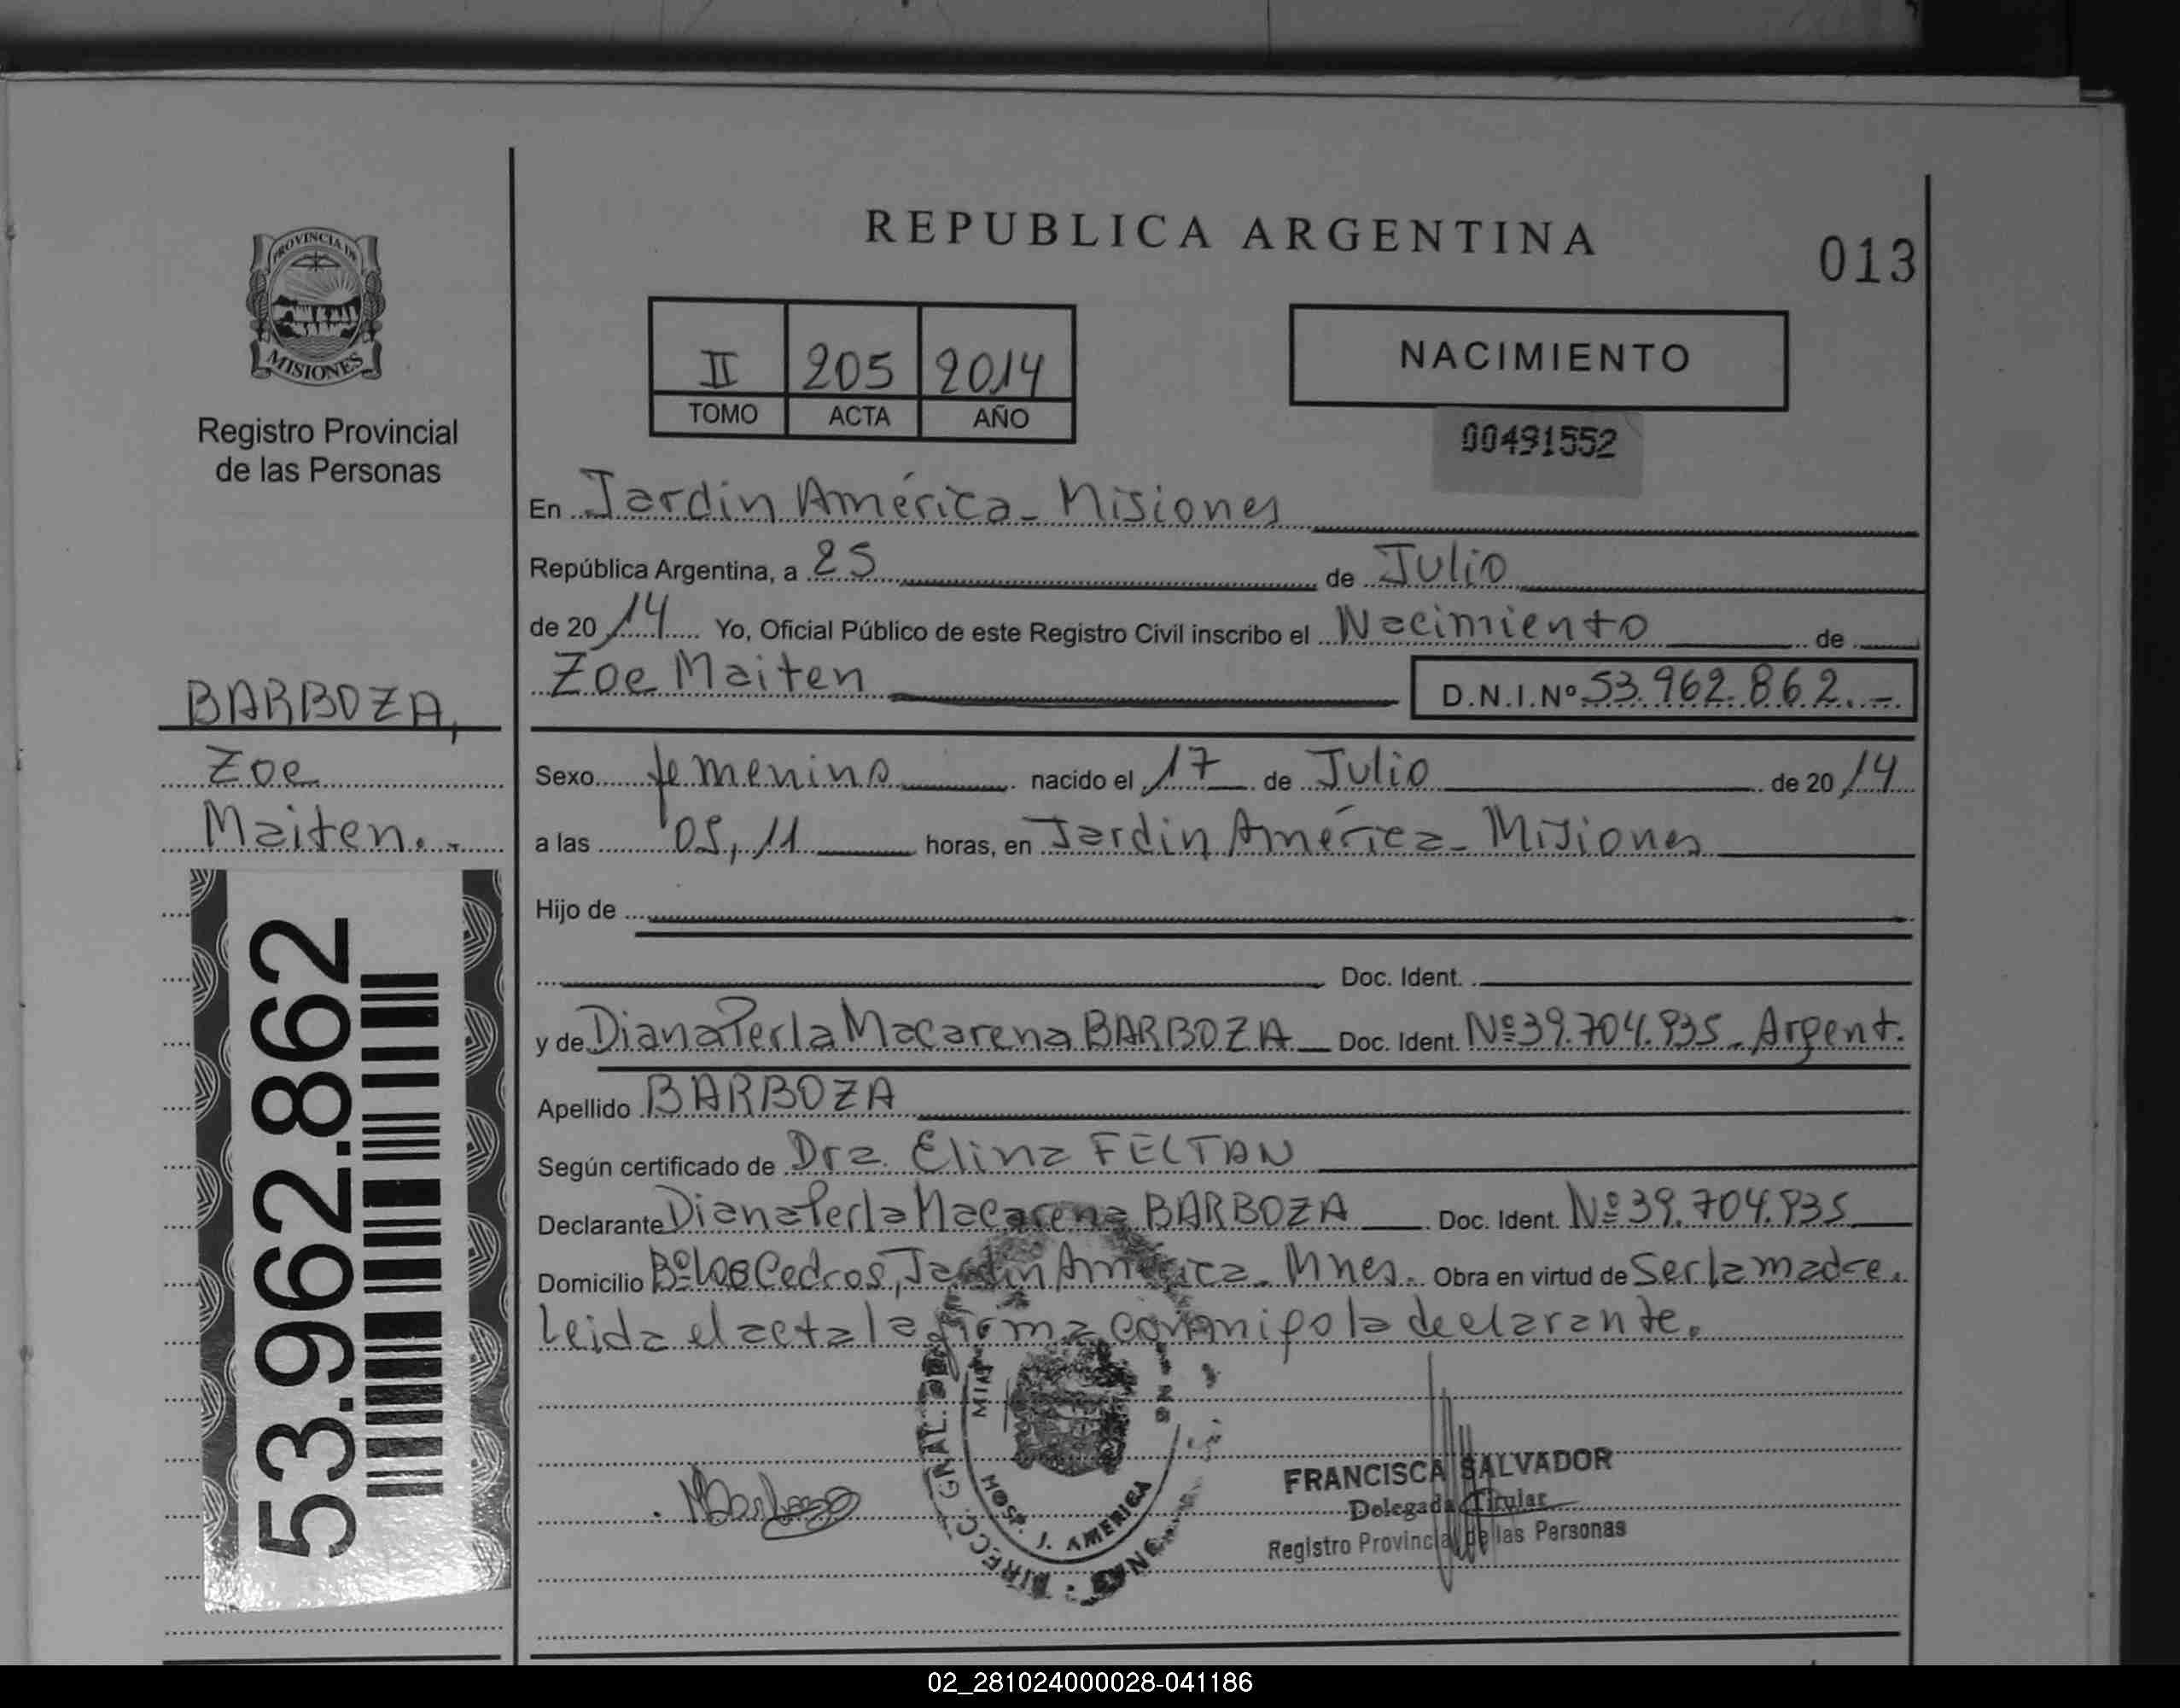 REPUBLICA ARGENTINA
013
PROVINCIA DE
MISIONES
Registro Provincial
de las Personas
II 205 2014
TOMO ACTA AÑO
NACIMIENTO
00491552
En Jardin América - Misiones
República Argentina, a 25 de Julio
de 20 14 Yo, Oficial Público de este Registro Civil inscribo el Nacimiento de
Zoe Maiten D.N.I.Nº 53.962.862.-
BARBOZA,
Zoe
Maiten.-
Sexo femenino nacido el 17 de Julio de 20 14
a las 05,11 horas, en Jardin América - Misiones
Hijo de
Doc. Ident.
y de Diana Perla Macarena BARBOZA Doc. Ident. Nº 39.704.935 - Argent.
Apellido BARBOZA
Según certificado de Dra. Elina FELTAN
Declarante Diana Perla Macarena BARBOZA Doc. Ident. Nº 39.704.935
Domicilio Bº Los Cedros, Jardin América - Mnes. Obra en virtud de Ser la madre.
Leida el acta la firma conmigo la declarante.
53.962.862
DIRECC. GRAL. DE
HOSP. J. AMERICA
Barboza
FRANCISCA SALVADOR
Delegada Titular
Registro Provincial de las Personas
02_281024000028-041186